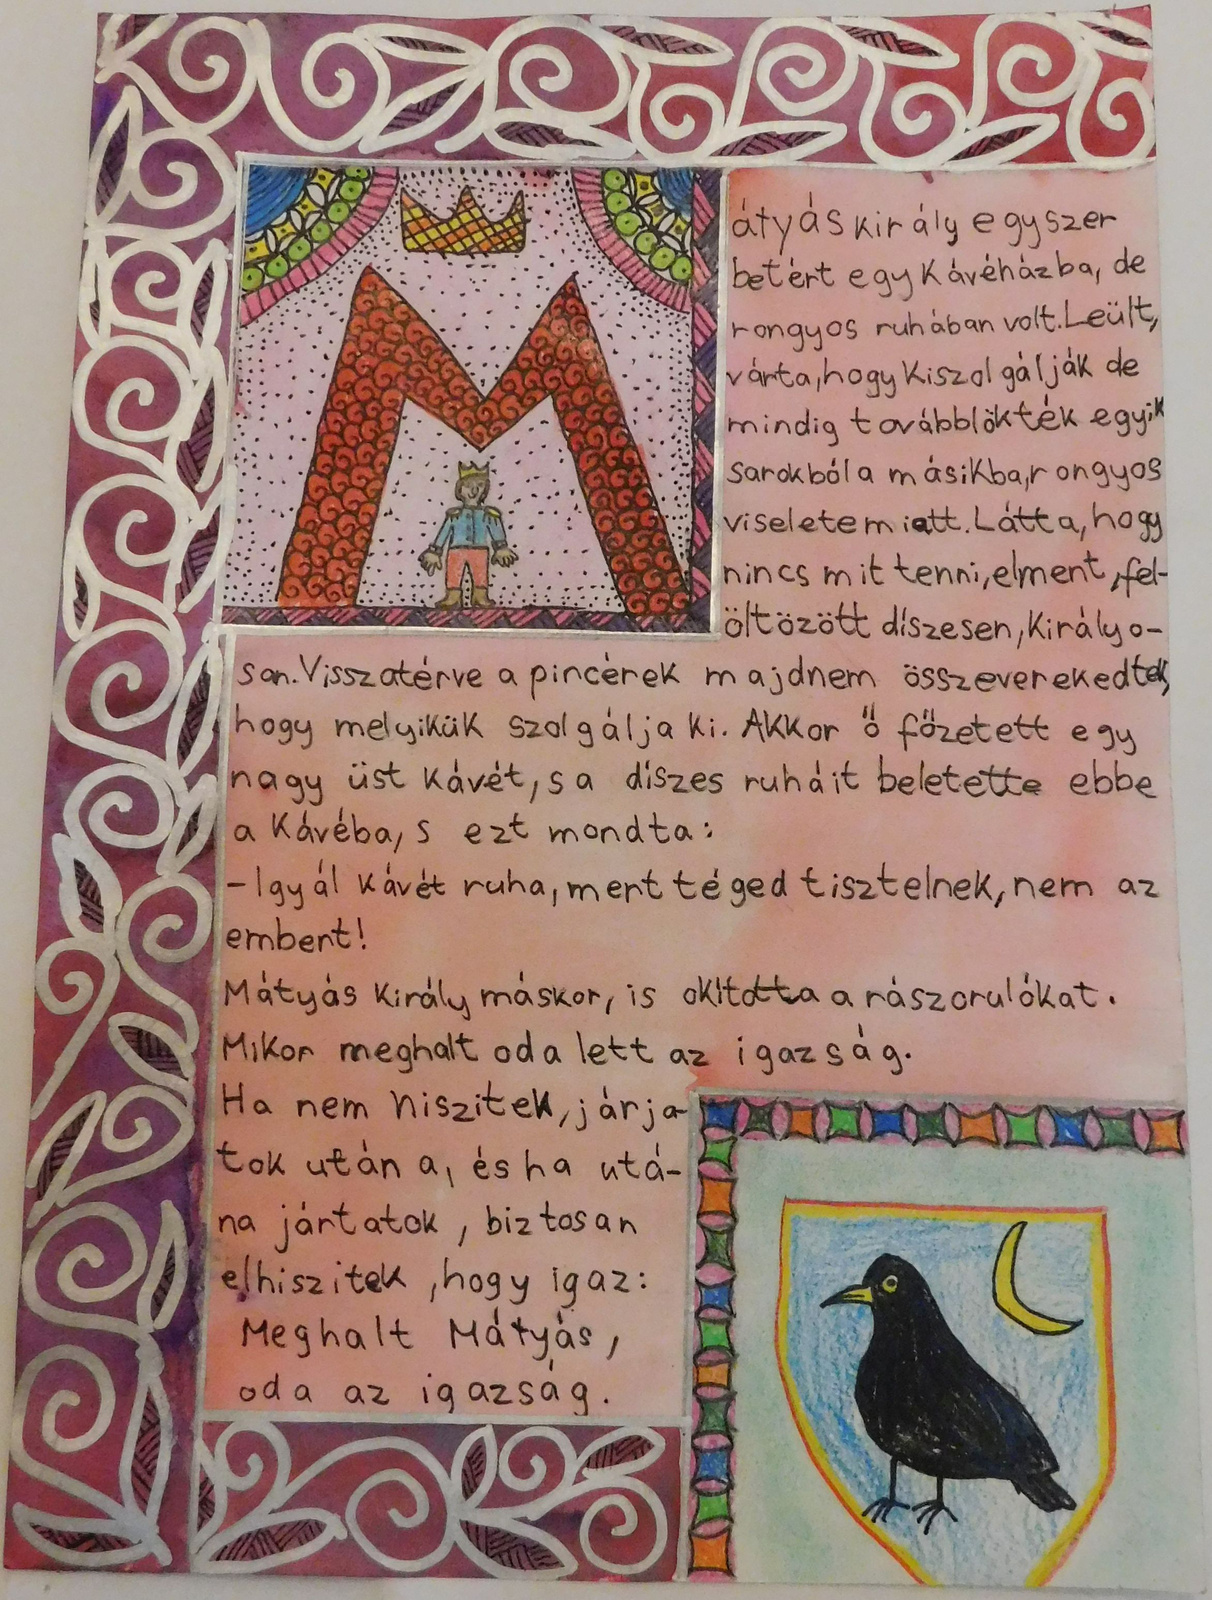 M
átyás király egyszer
betért egy kávéházba, de
rongyos ruhában volt. Leült,
várta, hogy kiszolgálják de
mindig továbblökték egyik
sarokból a másikba, rongyos
viselete miatt. Látta, hogy
nincs mit tenni, elment, fel-
öltözött díszesen, királyo-
san. Visszatérve a pincérek majdnem összeverekedtek,
hogy melyikük szolgálja ki. Akkor ő főzetett egy
nagy üst kávét, s a díszes ruháit beletette ebbe
a kávéba, s ezt mondta:
- Igyál kávét ruha, mert téged tisztelnek, nem az
embert!
Mátyás király máskor, is okította a rászorulókat.
Mikor meghalt oda lett az igazság.
Ha nem hiszitek, járja-
tok után a, és ha utá-
na jártatok, biztosan
elhiszitek, hogy igaz:
Meghalt Mátyás,
oda az igazság.